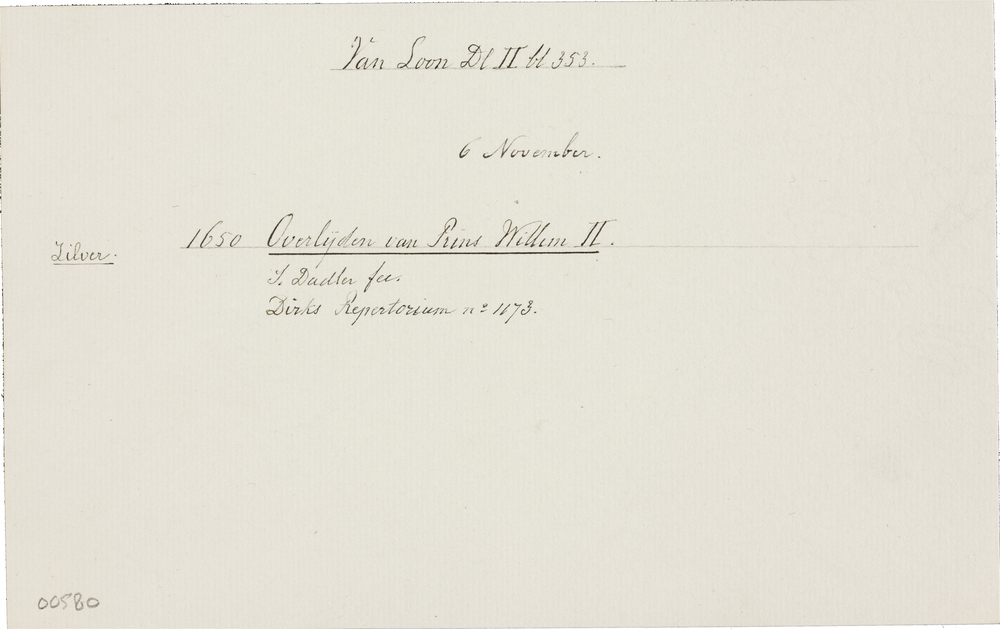 Van Loon Dl II bl 353.
6 November.
1650 Overlijden van Prins Willem II.
Zilver.
S. Dadler fec.
Dirks Repertorium nº 1173.
00580